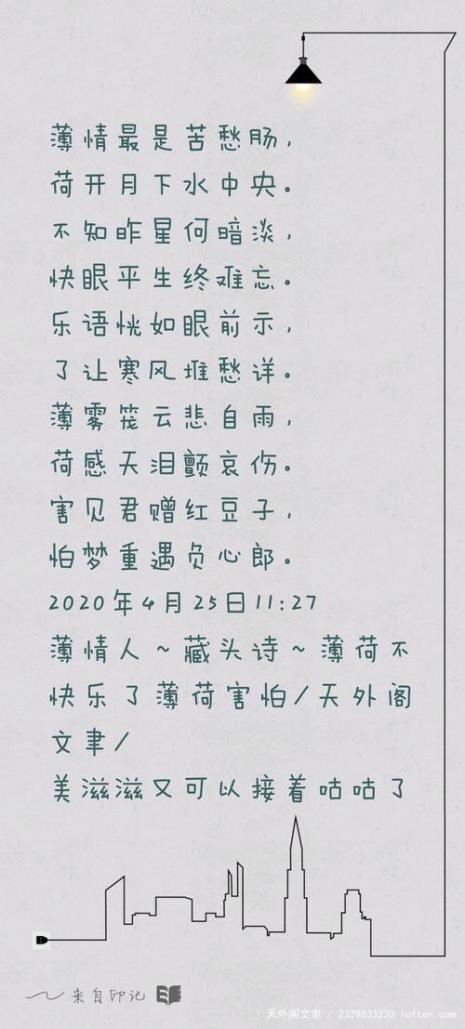 薄情最是苦愁肠，
荷开月下水中央。
不知昨星何暗淡，
快眼平生终难忘。
乐语恍如眼前示，
了让寒风堆愁详。
薄雾笼云悲自雨，
荷感天泪颤哀伤。
害见君赠红豆子，
怕梦重遇负心郎。
2020年4月25日11:27
薄情人~藏头诗~薄荷不
快乐了薄荷害怕/天外阁
文聿/
美滋滋又可以接着咕咕了
来自印记
天外阁文聿 / 2339833230.lofter.com